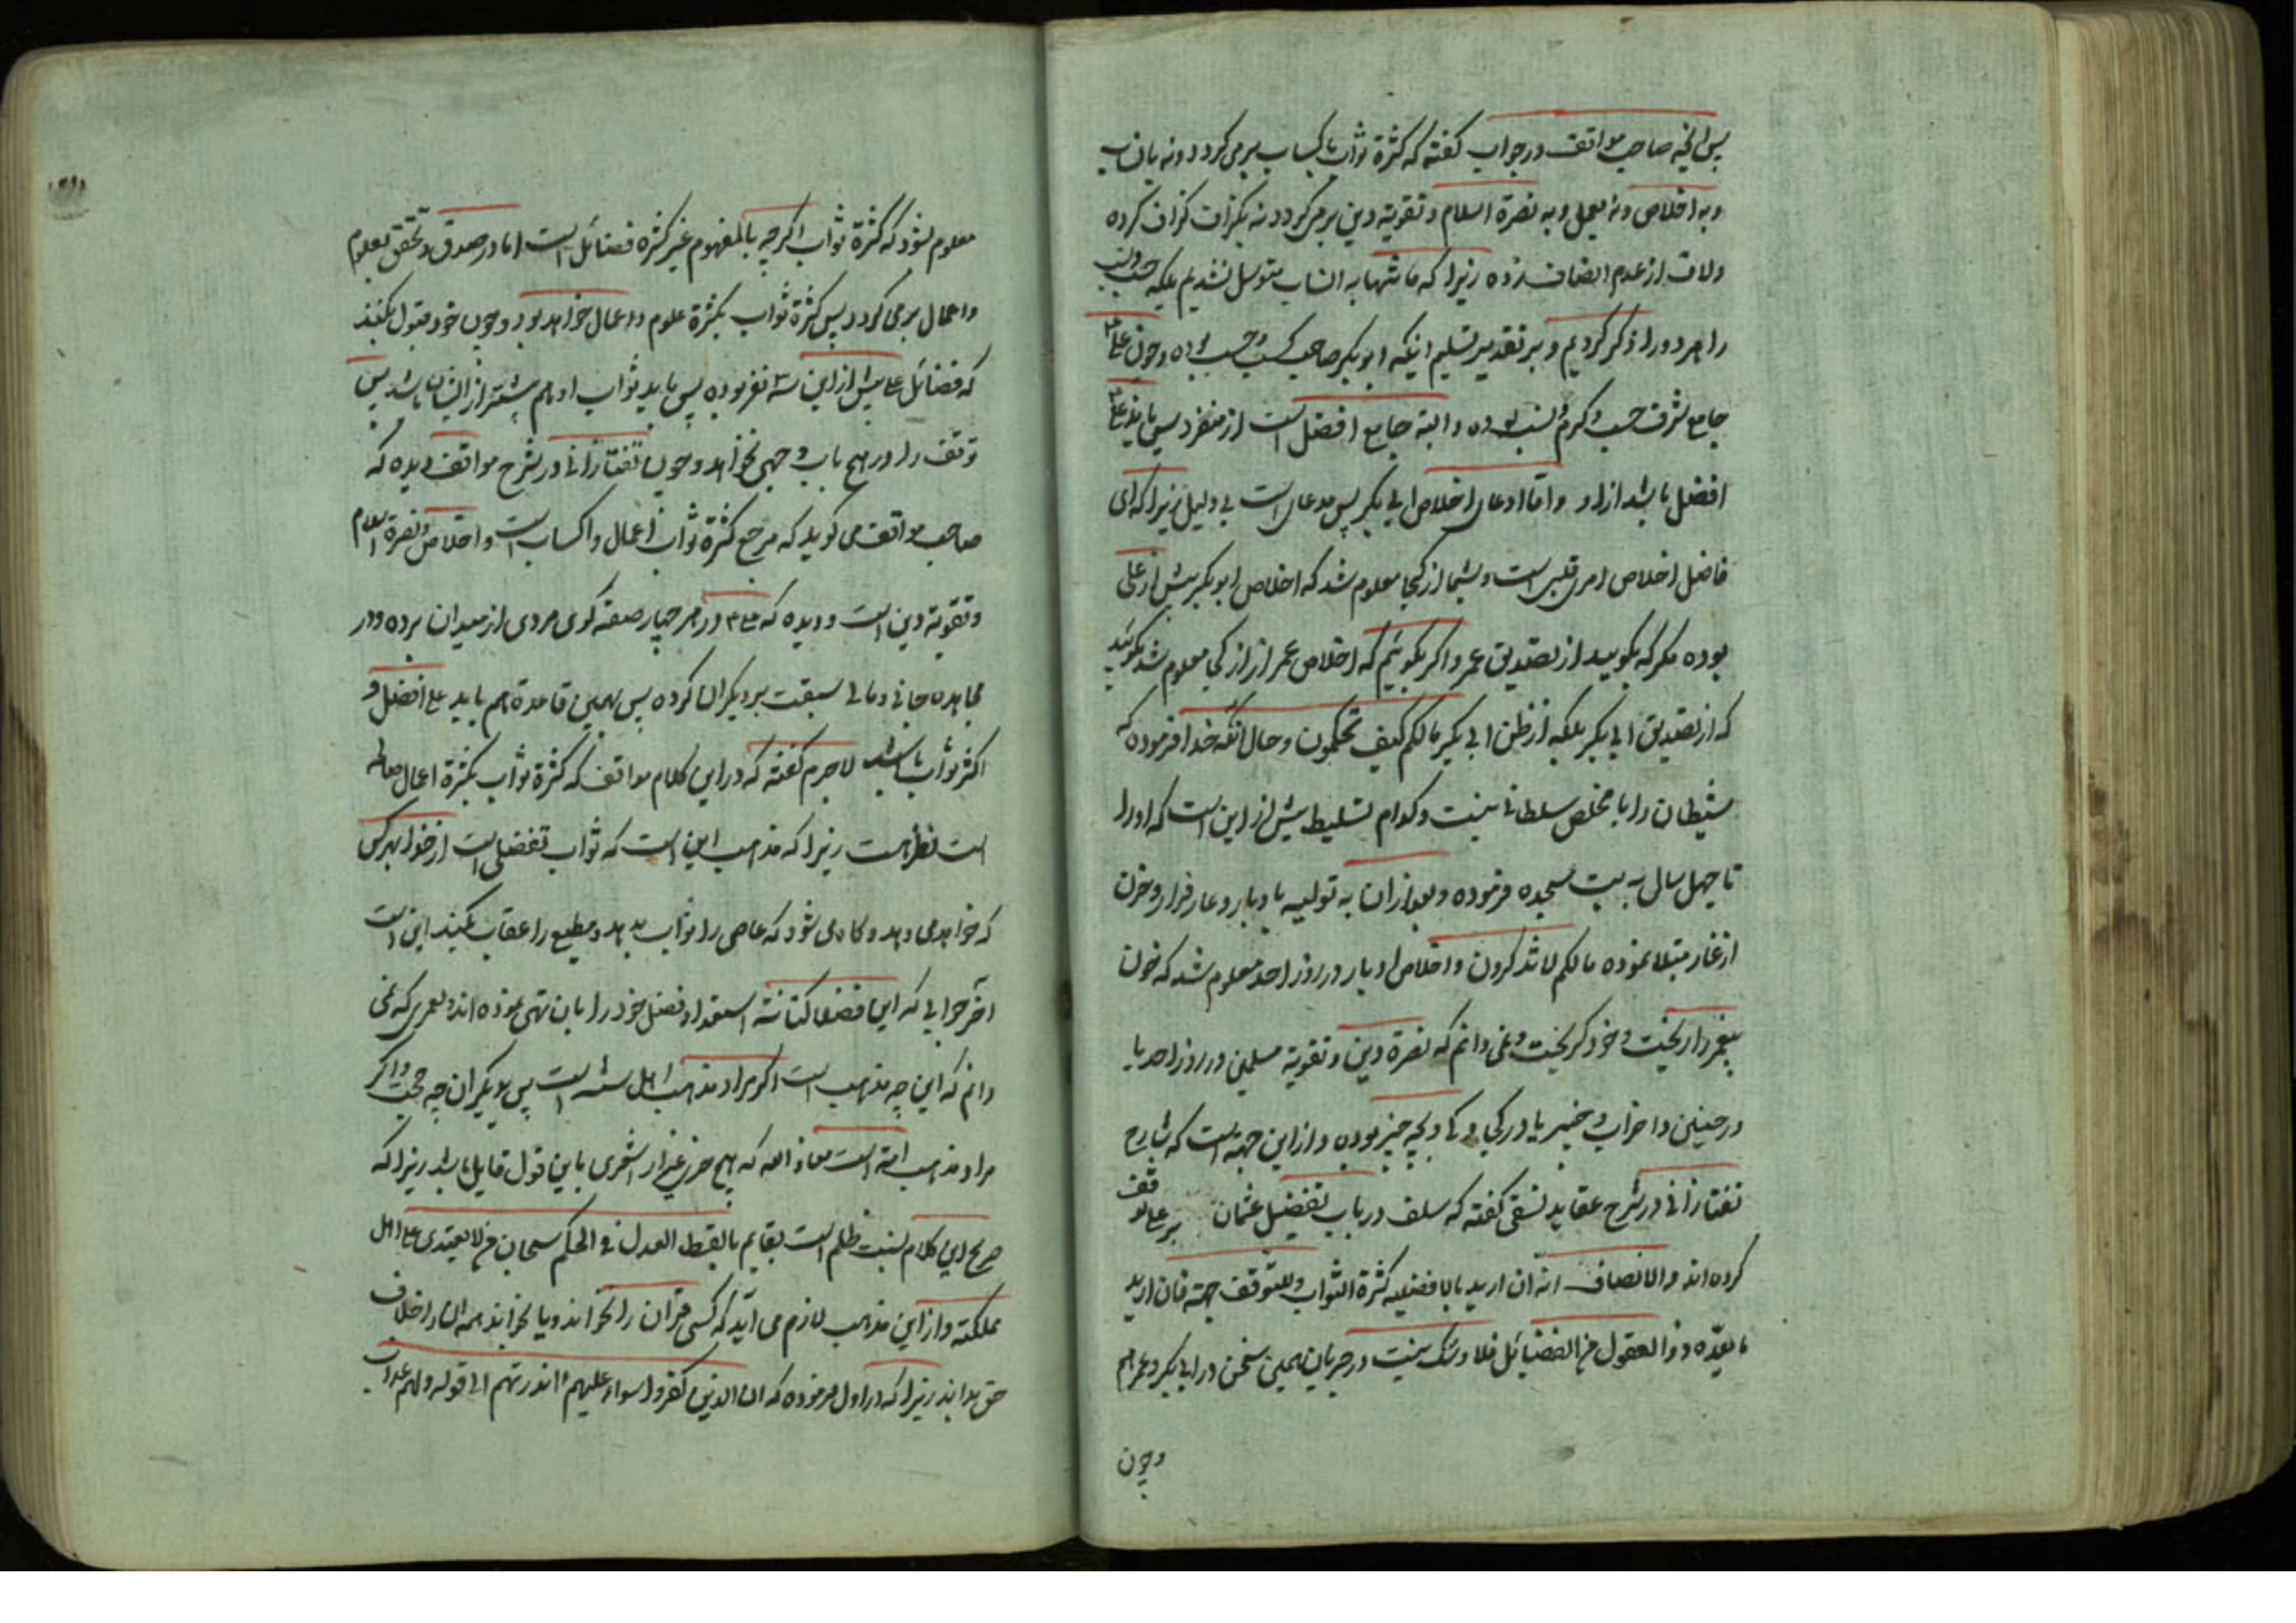 پس انچه صاحب مواقف در جواب گفته که کثرة ثواب باکساب برمی کردد و نه بانساب
و به اخلاص و نه بعمل و به نصرة اسلام و تقویة دین برمی کردد نه بکزاف کزاف کرده
ولاف از عدم انصاف زده زیرا که ما تنها به انساب متوسل نشدیم بلکه حسب و نسب
را هر دو را ذکر کردیم و بر تقدیر تسلیم اینکه ابو بکر صاحب کسب و حسب بوده و چون علی
جامع شرف حسب و کرم نسب بوده و البته جامع افضل است از منفرد پس باید علی
افضل باشد از او و اما ادعای اخلاص ابی بکر پس مدعای است بی دلیل زیرا که ای
فاضل اخلاص امری قلبی است و بشما از کجا معلوم شد که اخلاص ابو بکر بیش از علی
بوده مکر که بکویید از تصدیق عمر و اکر بکوئیم که اخلاص عمر از از کجا معلوم شد بکوئید
که از تصدیق ابی بکر بلکه از ظن ابی بکر مالکم کیف تحکمون و حال آنکه خدا فرموده که
شیطان را با مخلص سلطانی نیست و کدام تسلیط بیش از این است که او را
تا چهل سال به بت سجده فرموده و بعد از ان به تولیه بادبار و عار فرار و حزن
از غار مبتلا نموده مالکم لا تذکرون و اخلاص ادبار در روز احد معلوم شد که خون
پیغمبر را ریخت و خود کریخت و نمی دانم که نصرة دین و تقویة مسلمین در روز احد یا
در حنین و احزاب و خیبر یا در کی و کی و بچه چیز بوده و از این جهة است که شارح
تفتازانی در شرح عقاید نسفی گفته که سلف در باب تفضیل عثمان بر علی توقف
کرده اند و الانصاف انه ان ارید بالافضلیه کثرة الثواب و للتوقف جهة فان ارید
ما یعدّه ذو العقول من الفضایل فلا و شک نیست در جریان همین سخن در ابی بکر و عمر هم
وچون
معلوم نشود که کثرة ثواب اکرچه بالمفهوم غیر کثره فضائل است اما در صدق و تحقق بعلوم
و اعمال برمی کردد پس کثرة ثواب بکثرة علوم و اعمال خواهد بود و چون خود قبول بکنند
که فضائل علی بیش از این سه نفر بوده پس باید ثواب او هم بیشتر از ایشان باشد پس
توقف را در هیچ باب وجهی نخواهد و چون تفتازانی در شرح مواقف دیده که
صاحب مواقف می کوید که مرجع کثرة ثواب اعمال و اکساب است و اخلاص و نصرة اسلام
و تقویة دین است و دیده که علی در هر چهار صفه کوی مردی از میدان برده و در
مجاهده جانی و مالی سبقت بر دیکران کرده پس بهمین قاعدة هم باید علی افضل و
اکثر ثواب باشد لا جرم گفته که در این کلام مواقف که کثرة ثواب بکثرة اعمال صالحه
است نظر هست زیرا که مذهب این است که ثواب تفضلی است از خدا بهر کس
که خواهد می دهد و کاه می شود که عاصی را ثواب بدهد و مطیع را عقاب بکند این است
آخر جوابی که این فضلا استعداد فضل خود را بان منتهی نموده اند و لعمری که نمی
دانم که این چه مذهب است اکر مراد مذهب اهل سنه است پس بدیکران چه حجت و اکر
مراد مذهب امة است معاذ الله که هیچ خری غیر از اشعری باین قول قایل باشد زیرا که
صریح این کلام نسبت ظلم است بقایم بالقسط العدل فی الحکم سبحان من لا یعتدی علی اهل
مملکته و از این مذهب لازم می آید که کسی قران را نخواند و یا بخواند همه انرا خلاف
حق بداند زیرا که در اول فرموده که ان الذین کفروا سواء علیهم ءانذرتهم الی قوله ولهم عذاب